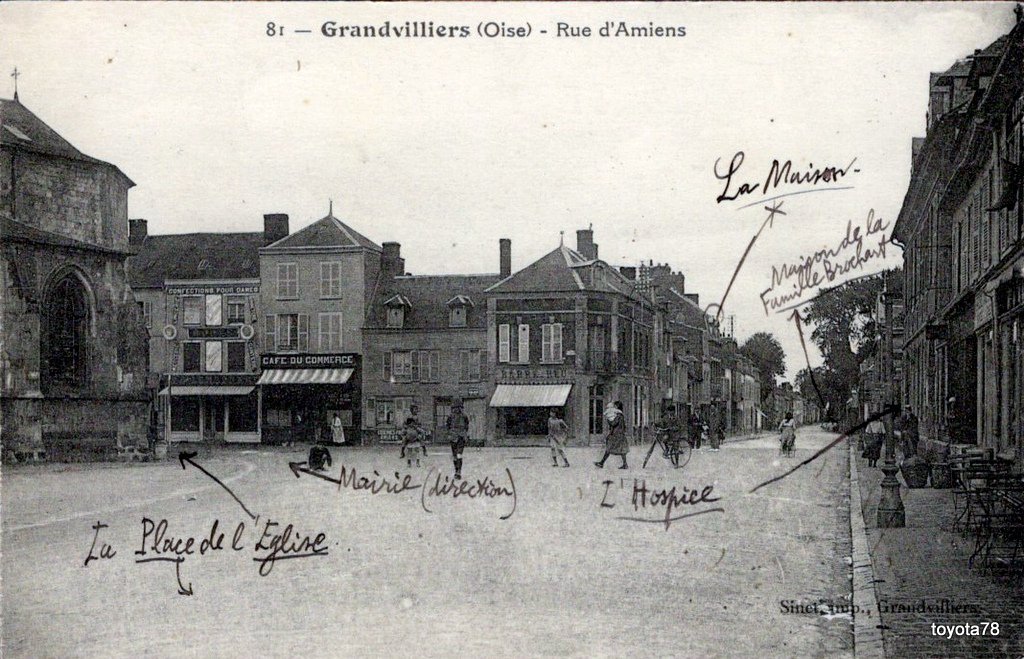 81 — Grandvilliers (Oise) - Rue d'Amiens
La Maison-
Maison de la
Famille Brochart
CONFECTIONS POUR DAMES
CAFÉ DU COMMERCE
Mairie (direction)
L'Hospice
La Place de l'Eglise
Sinet, imp., Grandvilliers
toyota78